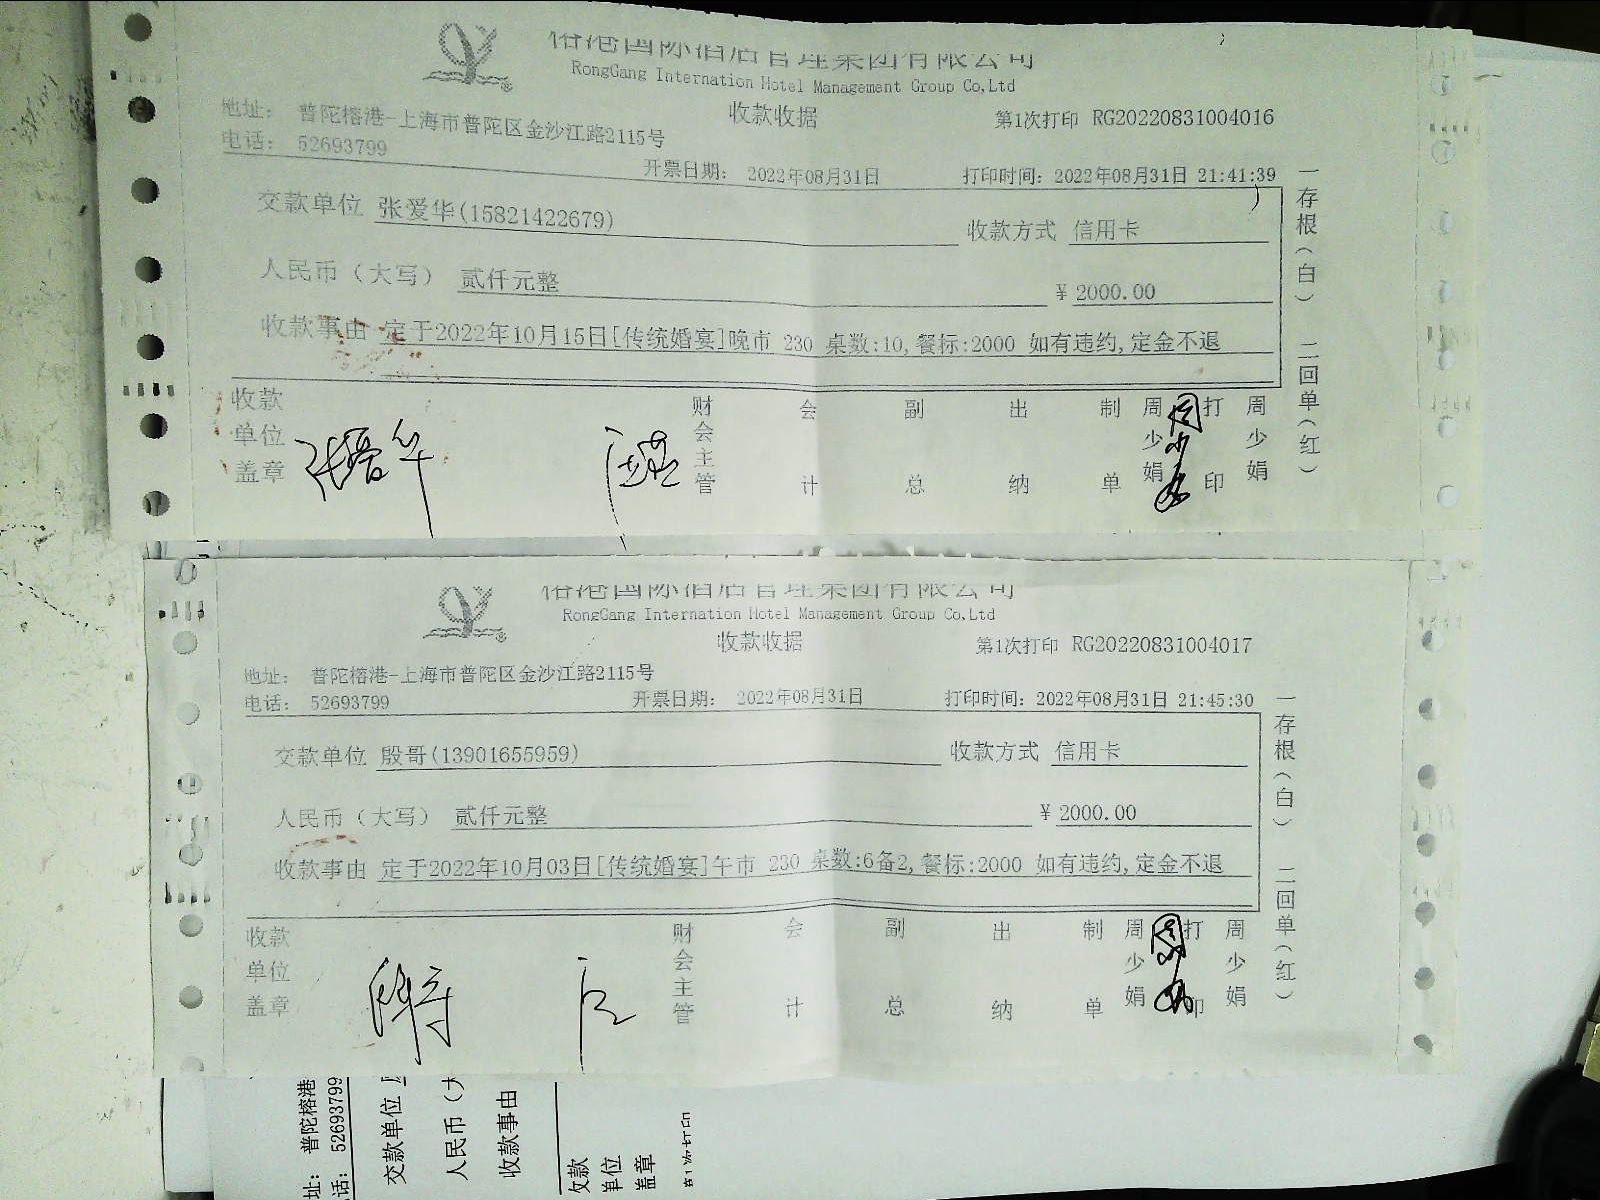 榕港国际酒店管理集团有限公司
RongGang Internation Hotel Management Group Co,Ltd
收款收据 第1次打印 RG20220831004016
地址： 普陀榕港-上海市普陀区金沙江路2115号
电话： 52693799
开票日期： 2022年08月31日 打印时间：2022年08月31日 21:41:39
交款单位 张爱华(15821422679) 收款方式 信用卡
人民币（大写） 贰仟元整 ¥ 2000.00
收款事由 定于2022年10月15日[传统婚宴]晚市 230 桌数:10,餐标:2000 如有违约,定金不退
一存根（白） 二回单（红）
收款单位盖章 财会主管 会计 副总 出纳 制单 周少娟 周少娟 打印 周少娟
榕港国际酒店管理集团有限公司
RongGang Internation Hotel Management Group Co,Ltd
收款收据 第1次打印 RG20220831004017
地址： 普陀榕港-上海市普陀区金沙江路2115号
电话： 52693799 开票日期： 2022年08月31日 打印时间：2022年08月31日 21:45:30
交款单位 殷哥(13901655959) 收款方式 信用卡
人民币（大写） 贰仟元整 ¥ 2000.00
收款事由 定于2022年10月03日[传统婚宴]午市 230 桌数:6备2,餐标:2000 如有违约,定金不退
一存根（白） 二回单（红）
收款单位盖章 财会主管 会计 副总 出纳 制单 周少娟 打印 周少娟
址： 普陀榕港
话： 52693799
交款单位
人民币（大
收款事由
单位
盖章
第1次打印